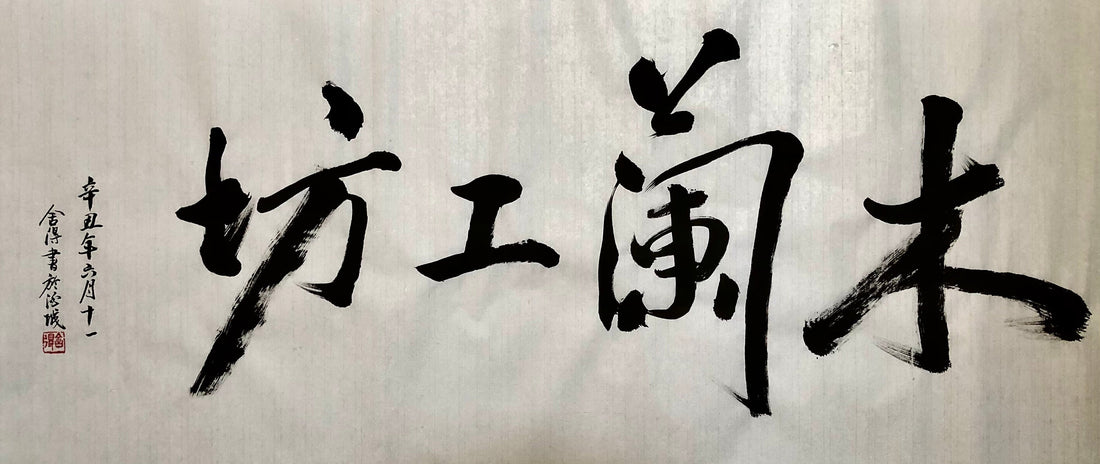 木蘭工坊
辛丑年六月十一
舍得書於